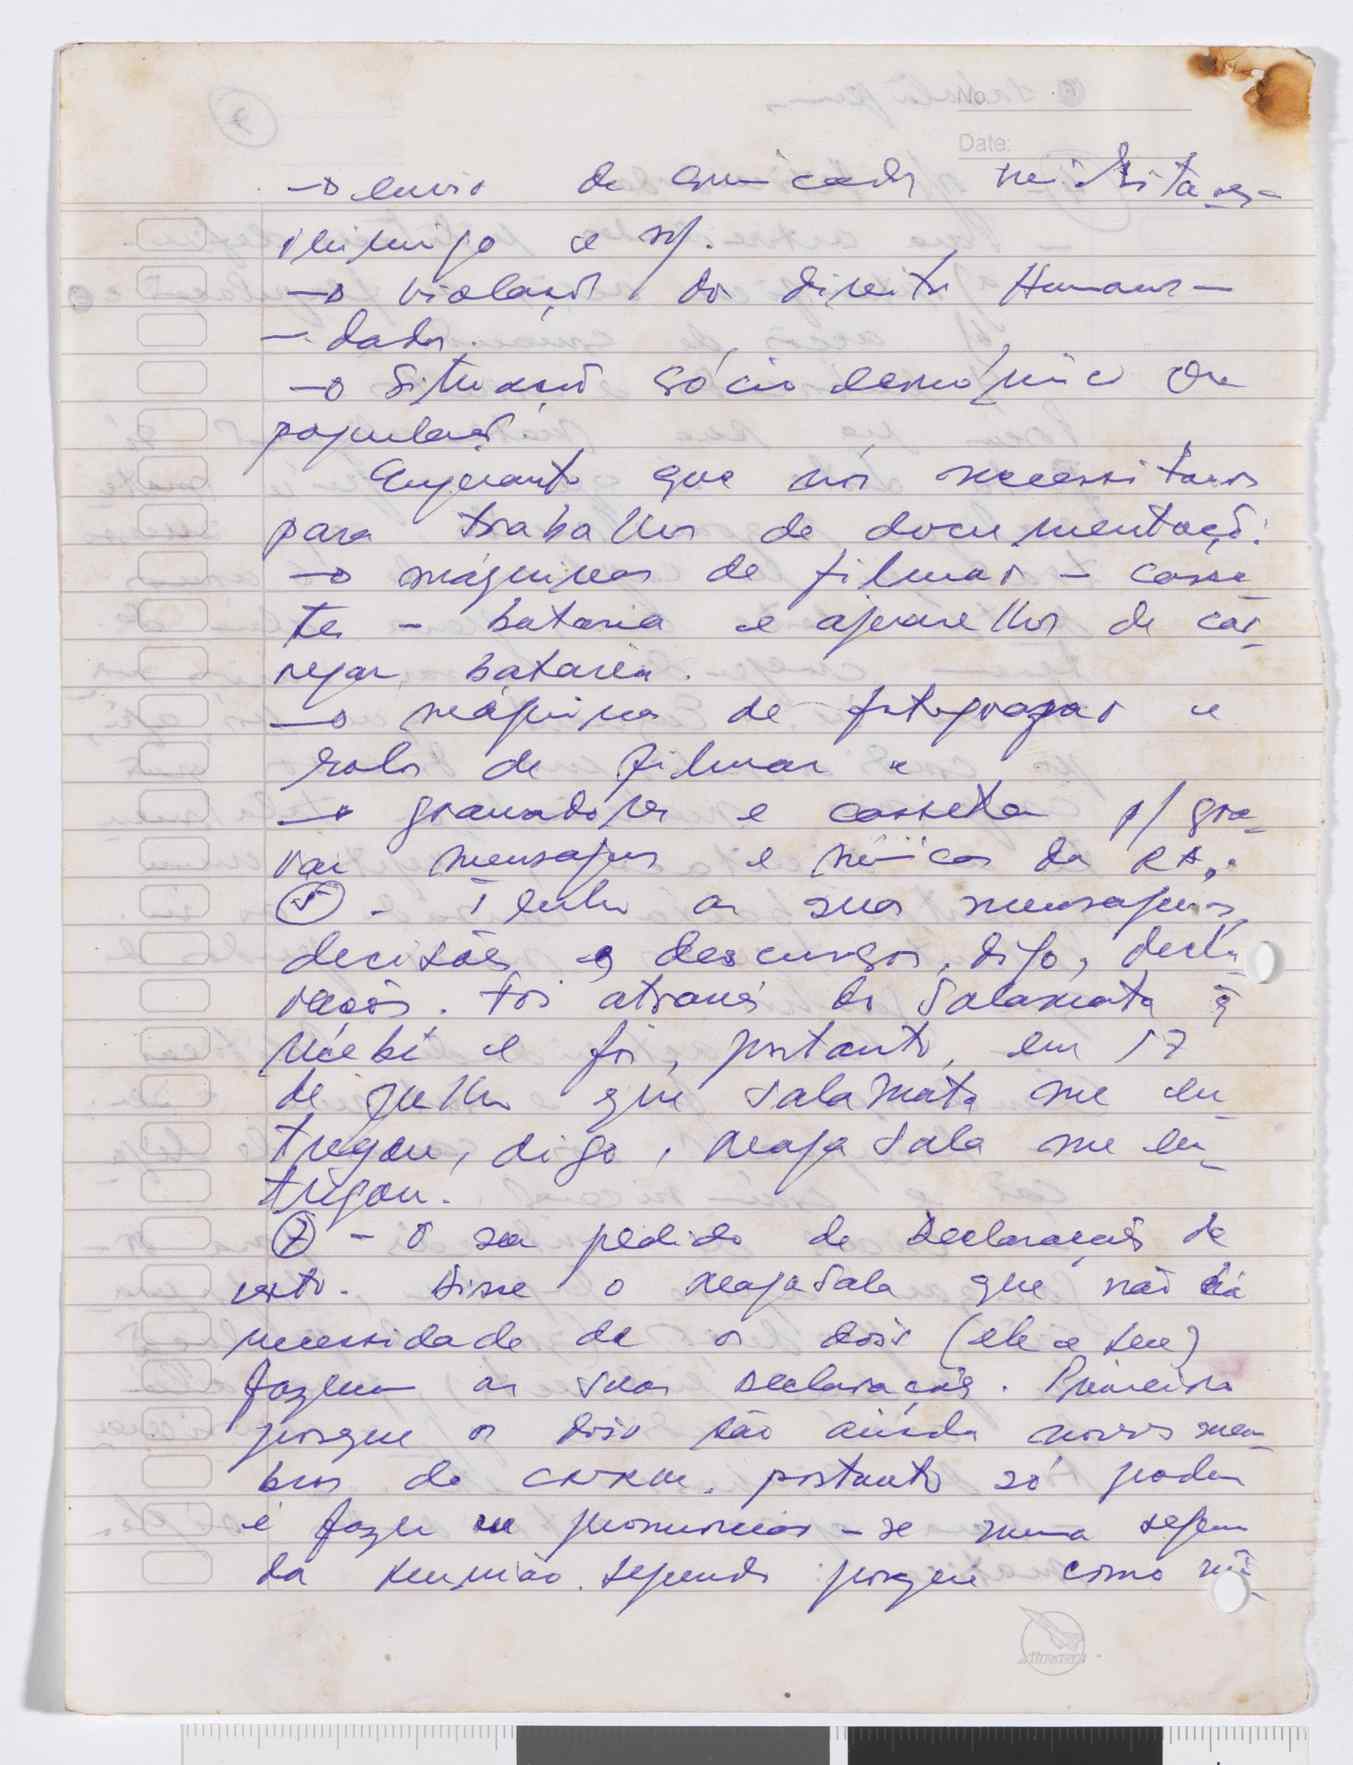 No
Date:
→ envio de comunicados militares -
inimigo e nf.
→ violação dos direitos Humanos -
- dados.
→ Situação sócio económica da
população
Enquanto que nós necessitamos
para trabalhos de documentação:
→ máquinas de filmar - casse-
tes - bataria e aparelhos de car-
regar batarias.
→ máquinas de fotografar e
rolos de filmar e
→ gravadores e cassetes p/ gra-
var mensagens e músicas da RA.
5 - Tenho as suas mensagens,
decisões e descursos, digo, decla-
rações. Foi através do Salamata
e foi, portanto, em 17
de julho que Salamata me en-
tregou, digo, Mapa Sala me en-
tregou.
7 - O seu pedido de Declarações de
voto. Disse o que não há
necessidade de os dois (ele e
fazerem as suas declarações. Primeiro
porque os dois são ainda novos mem-
bros do CNRM, portanto só podem
é fazer pronunciar-se numa segun-
da reunião. Segundo: porque como